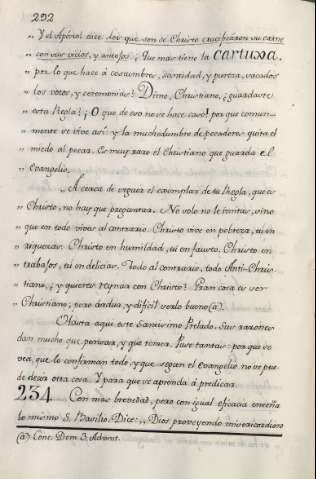 292
„ Y el Apóstol dice, los que son de Christo crucificaron su carne
„ con sus vicios, y antojos; ¿Que mas tiene la cartuxa.
„ por lo que hace á costumbres, santidad, y pureza, sacados
„ los votos, y ceremonias? Dime, Christiano, ¿guardaste
„ esta Regla? ¡O que de eso no se hace caso! por que comun-
„ mente se vive asi: y la muchedumbre de pecadores quita el
„ miedo al pecar. Es muy raro el Christiano que guarda el
„ Evangelio.
„ Acerca de seguir el exemplar de tu Regla, que es
„ Christo, no hay que preguntar. No solo no le imitas, sino
„ que en todo vives al contrario. Christo vive en pobreza, tu en
„ riquezas. Christo en humildad, tu en fausto. Christo en
„ trabajos, tu en delicias. Todo al contrario, todo Anti-Chris-
„ tiano, ¿y quieres reynar con Christo? Gran cosa es ser
„ Christiano; pero árdua, y dificil serlo bueno (a).
Hasta aqui este Santisimo Prelado. Sus razones
dan mucho que pensar, y que temer. Puse tantas: por que se
vea, que lo confirman todo, y que segun el Evangelio no se pue-
de decir otra cosa. Y para que se aprenda á predicar.
234 Con mas brevedad, pero con igual eficacia enseña
lo mismo S. Basilio. Dice: „ Dios proveyendo misericordioso
(a) Conc. Dom. 3. Advent.